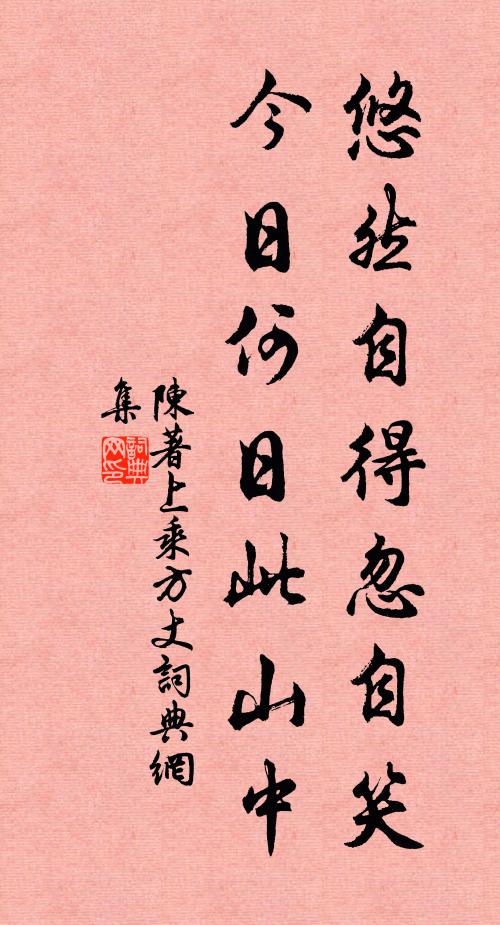 悠然自得忽自笑
今日何日此山中
陳著上乘方丈詞典網
集
詞典
网印